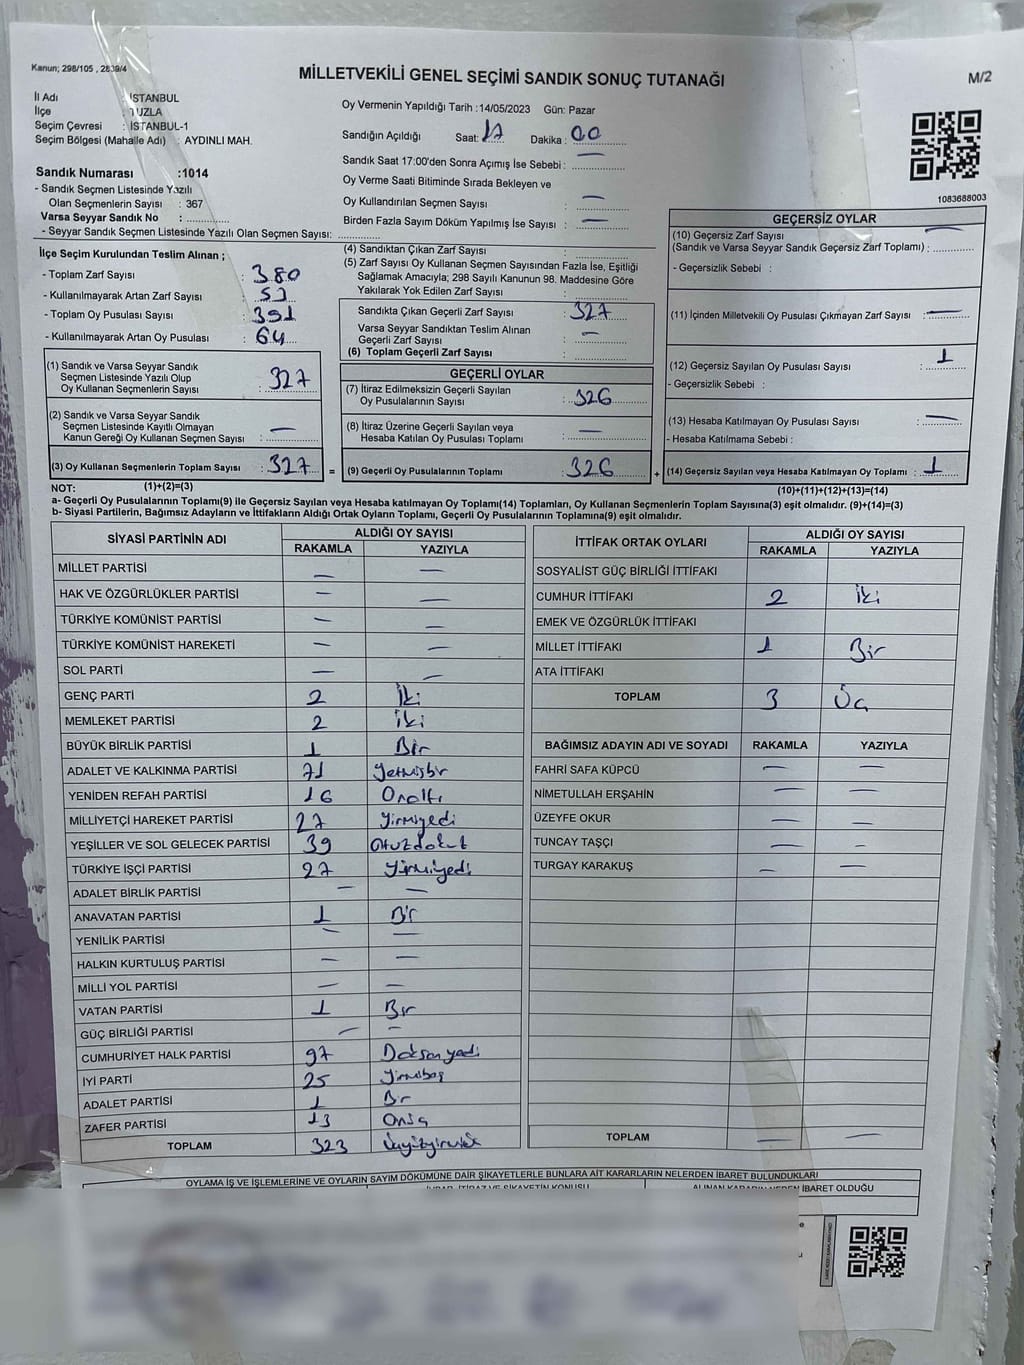 Kanun; 298/105 , 2839/4
MİLLETVEKİLİ GENEL SEÇİMİ SANDIK SONUÇ TUTANAĞI
M/2
İl Adı : İSTANBUL
İlçe : TUZLA
Seçim Çevresi : İSTANBUL-1
Seçim Bölgesi (Mahalle Adı) : AYDINLI MAH.
Sandık Numarası :1014
- Sandık Seçmen Listesinde Yazılı
Olan Seçmenlerin Sayısı : 367
Varsa Seyyar Sandık No :
- Seyyar Sandık Seçmen Listesinde Yazılı Olan Seçmen Sayısı:
Oy Vermenin Yapıldığı Tarih :14/05/2023 Gün: Pazar
Sandığın Açıldığı Saat: 17 Dakika : 00
Sandık Saat 17:00'den Sonra Açımış İse Sebebi : —
Oy Verme Saati Bitiminde Sırada Bekleyen ve
Oy Kullandırılan Seçmen Sayısı : —
Birden Fazla Sayım Döküm Yapılmış İse Sayısı : —
1083688003
İlçe Seçim Kurulundan Teslim Alınan ;
- Toplam Zarf Sayısı : 380
- Kullanılmayarak Artan Zarf Sayısı :
- Toplam Oy Pusulası Sayısı : 391
- Kullanılmayarak Artan Oy Pusulası : 64
(1) Sandık ve Varsa Seyyar Sandık
Seçmen Listesinde Yazılı Olup
Oy Kullanan Seçmenlerin Sayısı : 327
(2) Sandık ve Varsa Seyyar Sandık
Seçmen Listesinde Kayıtlı Olmayan
Kanun Gereği Oy Kullanan Seçmen Sayısı : —
(3) Oy Kullanan Seçmenlerin Toplam Sayısı : 327 =
(1)+(2)=(3)
(4) Sandıktan Çıkan Zarf Sayısı :
(5) Zarf Sayısı Oy Kullanan Seçmen Sayısından Fazla İse, Eşitliği
Sağlamak Amacıyla; 298 Sayılı Kanunun 98. Maddesine Göre
Yakılarak Yok Edilen Zarf Sayısı :
Sandıkta Çıkan Geçerli Zarf Sayısı : 327
Varsa Seyyar Sandıktan Teslim Alınan
Geçerli Zarf Sayısı : —
(6) Toplam Geçerli Zarf Sayısı :
GEÇERLİ OYLAR
(7) İtiraz Edilmeksizin Geçerli Sayılan
Oy Pusulalarının Sayısı : 326
(8) İtiraz Üzerine Geçerli Sayılan veya
Hesaba Katılan Oy Pusulası Toplamı : —
(9) Geçerli Oy Pusulalarının Toplamı : 326 +
GEÇERSİZ OYLAR
(10) Geçersiz Zarf Sayısı —
(Sandık ve Varsa Seyyar Sandık Geçersiz Zarf Toplamı) :
- Geçersizlik Sebebi :
(11) İçinden Milletvekili Oy Pusulası Çıkmayan Zarf Sayısı : —
(12) Geçersiz Sayılan Oy Pusulası Sayısı : 1
- Geçersizlik Sebebi :
(13) Hesaba Katılmayan Oy Pusulası Sayısı : —
- Hesaba Katılmama Sebebi :
(14) Geçersiz Sayılan veya Hesaba Katılmayan Oy Toplamı : 1
(10)+(11)+(12)+(13)=(14)
NOT:
a- Geçerli Oy Pusulalarının Toplamı(9) ile Geçersiz Sayılan veya Hesaba katılmayan Oy Toplamı(14) Toplamları, Oy Kullanan Seçmenlerin Toplam Sayısına(3) eşit olmalıdır. (9)+(14)=(3)
b- Siyasi Partilerin, Bağımsız Adayların ve İttifakların Aldığı Ortak Oyların Toplamı, Geçerli Oy Pusulalarının Toplamına(9) eşit olmalıdır.
SİYASİ PARTİNİN ADI ALDIĞI OY SAYISI
RAKAMLA YAZIYLA
MİLLET PARTİSİ — —
HAK VE ÖZGÜRLÜKLER PARTİSİ — —
TÜRKİYE KOMÜNİST PARTİSİ — —
TÜRKİYE KOMÜNİST HAREKETİ — —
SOL PARTİ — —
GENÇ PARTİ 2 İki
MEMLEKET PARTİSİ 2 iki
BÜYÜK BİRLİK PARTİSİ 1 Bir
ADALET VE KALKINMA PARTİSİ 71 Yetmişbir
YENİDEN REFAH PARTİSİ 16 Onaltı
MİLLİYETÇİ HAREKET PARTİSİ 27 Yirmiyedi
YEŞİLLER VE SOL GELECEK PARTİSİ 39 Otuzdokuz
TÜRKİYE İŞÇİ PARTİSİ 27 Yirmiyedi
ADALET BİRLİK PARTİSİ — —
ANAVATAN PARTİSİ 1 Bir
YENİLİK PARTİSİ — —
HALKIN KURTULUŞ PARTİSİ — —
MİLLİ YOL PARTİSİ — —
VATAN PARTİSİ 1 Bir
GÜÇ BİRLİĞİ PARTİSİ — —
CUMHURİYET HALK PARTİSİ 97 Doksanyedi
İYİ PARTİ 25 Yirmibeş
ADALET PARTİSİ 1 Bir
ZAFER PARTİSİ 13 Onüç
TOPLAM 323
İTTİFAK ORTAK OYLARI ALDIĞI OY SAYISI
RAKAMLA YAZIYLA
SOSYALİST GÜÇ BİRLİĞİ İTTİFAKI
CUMHUR İTTİFAKI 2 İki
EMEK VE ÖZGÜRLÜK İTTİFAKI
MİLLET İTTİFAKI 1 Bir
ATA İTTİFAKI
TOPLAM 3 Üç
BAĞIMSIZ ADAYIN ADI VE SOYADI RAKAMLA YAZIYLA
FAHRİ SAFA KÜPCÜ — —
NİMETULLAH ERŞAHİN — —
ÜZEYFE OKUR — —
TUNCAY TAŞÇI — —
TURGAY KARAKUŞ — —
TOPLAM — —
OYLAMA İŞ VE İŞLEMLERİNE VE OYLARIN SAYIM DÖKÜMÜNE DAİR ŞİKAYETLERLE BUNLARA AİT KARARLARIN NELERDEN İBARET BULUNDUKLARI
İTİRAZ VE ŞİKAYETİN KONUSU
ALINAN KARARIN NEDEN İBARET OLDUĞU